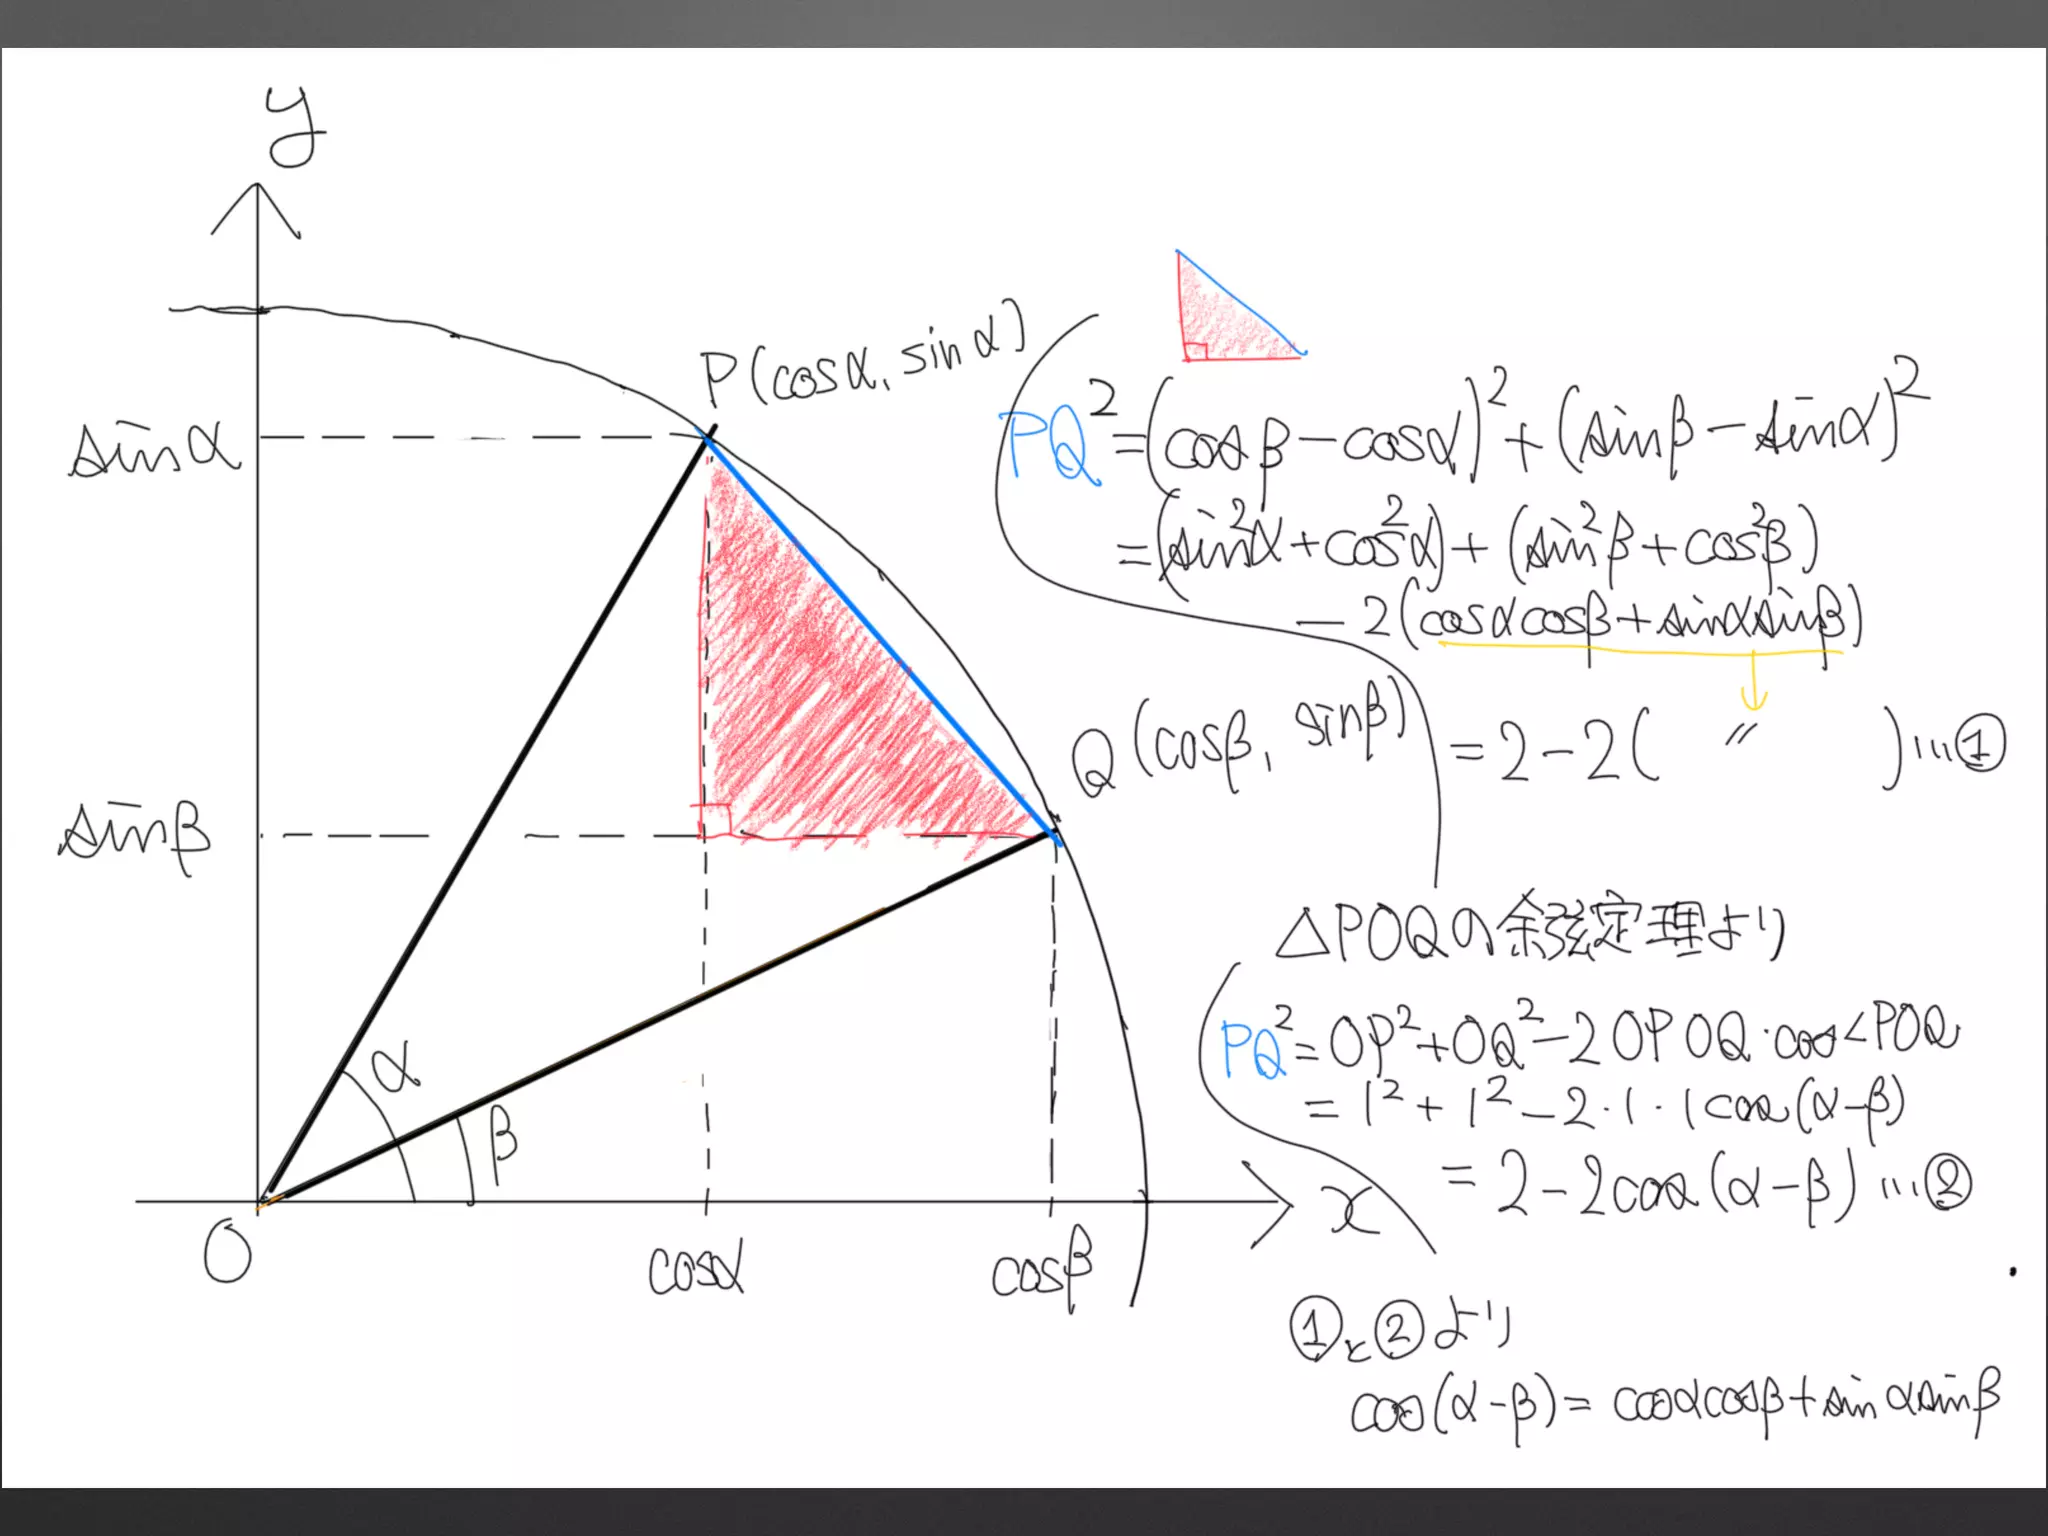 y
P(cosα, sinα)
sinα
PQ² = (cosβ − cosα)² + (sinβ − sinα)²
= (sin²α + cos²α) + (sin²β + cos²β)
− 2(cosαcosβ + sinαsinβ)
Q(cosβ, sinβ)
= 2 − 2( 〃 ) … ①
sinβ
△POQの余弦定理より
PQ² = OP² + OQ² − 2 OP OQ · cos∠POQ
= 1² + 1² − 2 · 1 · 1 cos(α−β)
= 2 − 2cos(α−β) … ②
α
β
O
cosα
cosβ
x
①と②より
cos(α−β) = cosαcosβ + sinαsinβ